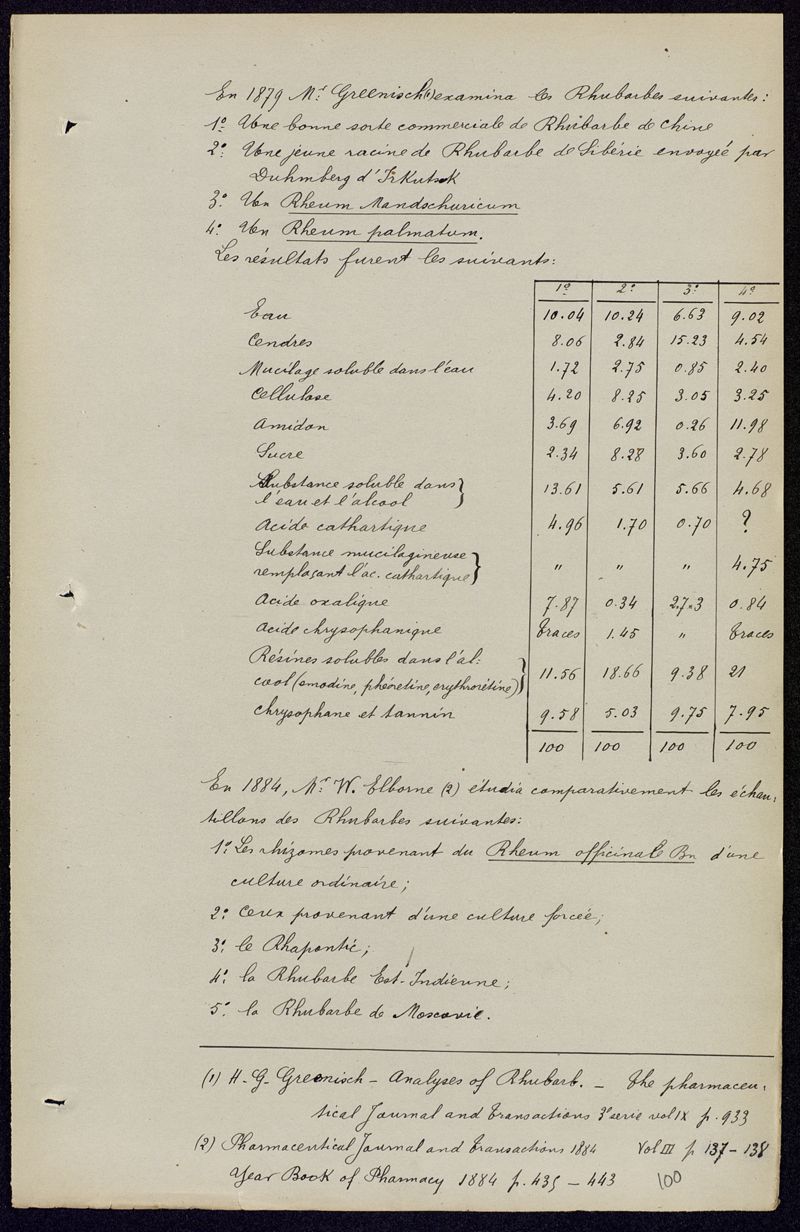 En 1879 Mr. Greenisch (1) examina les Rhubarbes suivantes:
1º Une bonne sorte commerciale de Rhubarbe de Chine
2º. Une jeune racine de Rhubarbe de Sibérie envoyée par
Duhmberg d'Irkutsk
3º. Un Rheum Mandschuricum
4º. Un Rheum palmatum.
Les résultats furent les suivants:
1º 2º. 3º. 4º
Eau 10.04 10.24 6.63 9.02
Cendres 8.06 2.84 15.23 4.54
Mucilage soluble dans l'eau 1.72 2.75 0.85 2.40
Cellulose 4.20 8.25 3.05 3.25
Amidon 3.69 6.92 0.26 11.98
Sucre 2.34 8.28 3.60 2.78
Substance soluble dans
l'eau et l'alcool } 13.61 5.61 5.66 4.68
Acide cathartique 4.96 1.70 0.70 ?
Substance mucilagineuse
remplaçant l'ac. cathartique } " " " 4.75
Acide oxalique 7.87 0.34 27.3 0.84
Acide chrysophanique Traces 1.45 " Traces
Résines solubles dans l'al:
cool (emodine, phéoretine, erythrorétine) } 11.56 18.66 9.38 21
Chrysophane et tannin 9.58 5.03 9.75 7.95
100 100 100 100
En 1884, Mr. W. Elborne (2) étudia comparativement les échan:
tillons des Rhubarbes suivantes:
1º. Les rhizomes provenant du Rheum officinale Bn d'une
culture ordinaire;
2º. Ceux provenant d'une culture forcée;
3º. le Rhapontic;
4º. la Rhubarbe Est-Indienne;
5º. la Rhubarbe de Moscovie.
(1) H-G-Greenisch - Analyses of Rhubarb. - The pharmaceu:
tical Journal and Transactions 3e serie vol IX p. 933
(2) Pharmaceutical Journal and Transactions 1884 Vol III p 137-138
Year Book of Pharmacy 1884 p. 435 - 443 100